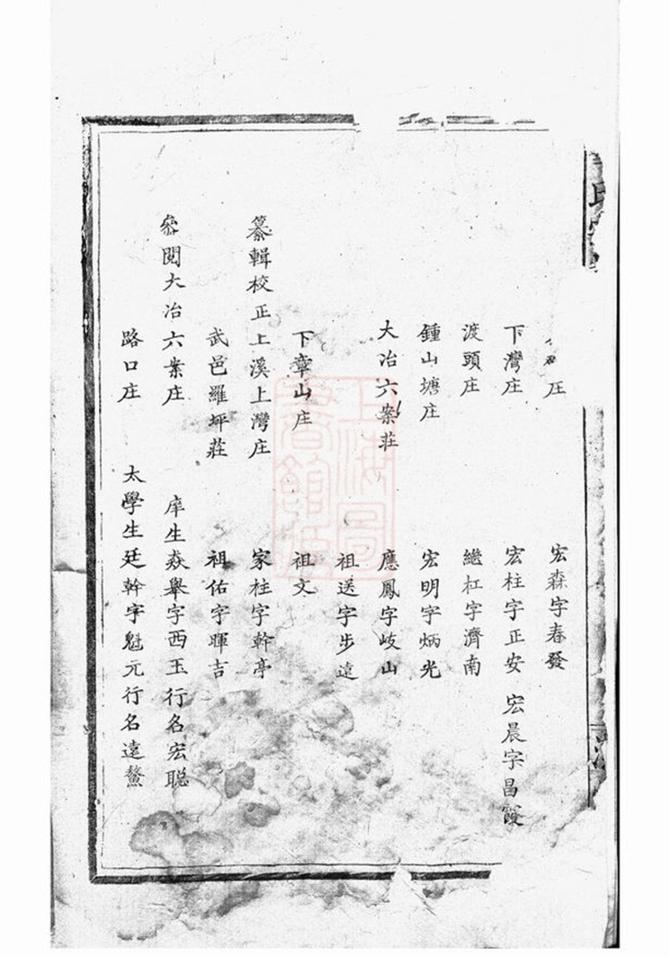 庄 宏森字春發
下灣庄 宏柱字正安 宏晨字昌霞
渡頭庄 繼杠字濟南
鍾山塘庄 宏明字炳光
大冶六案莊 應鳳字岐山
祖送字步遠
下章山庄 祖文
纂輯校正上溪上灣庄 家柱字幹亭
武邑羅坪莊 祖佑字暉吉
叅閱大冶六案庄 庠生焱舉字西玉行名宏聪
路口庄 太學生廷幹字魁元行名遠鰲